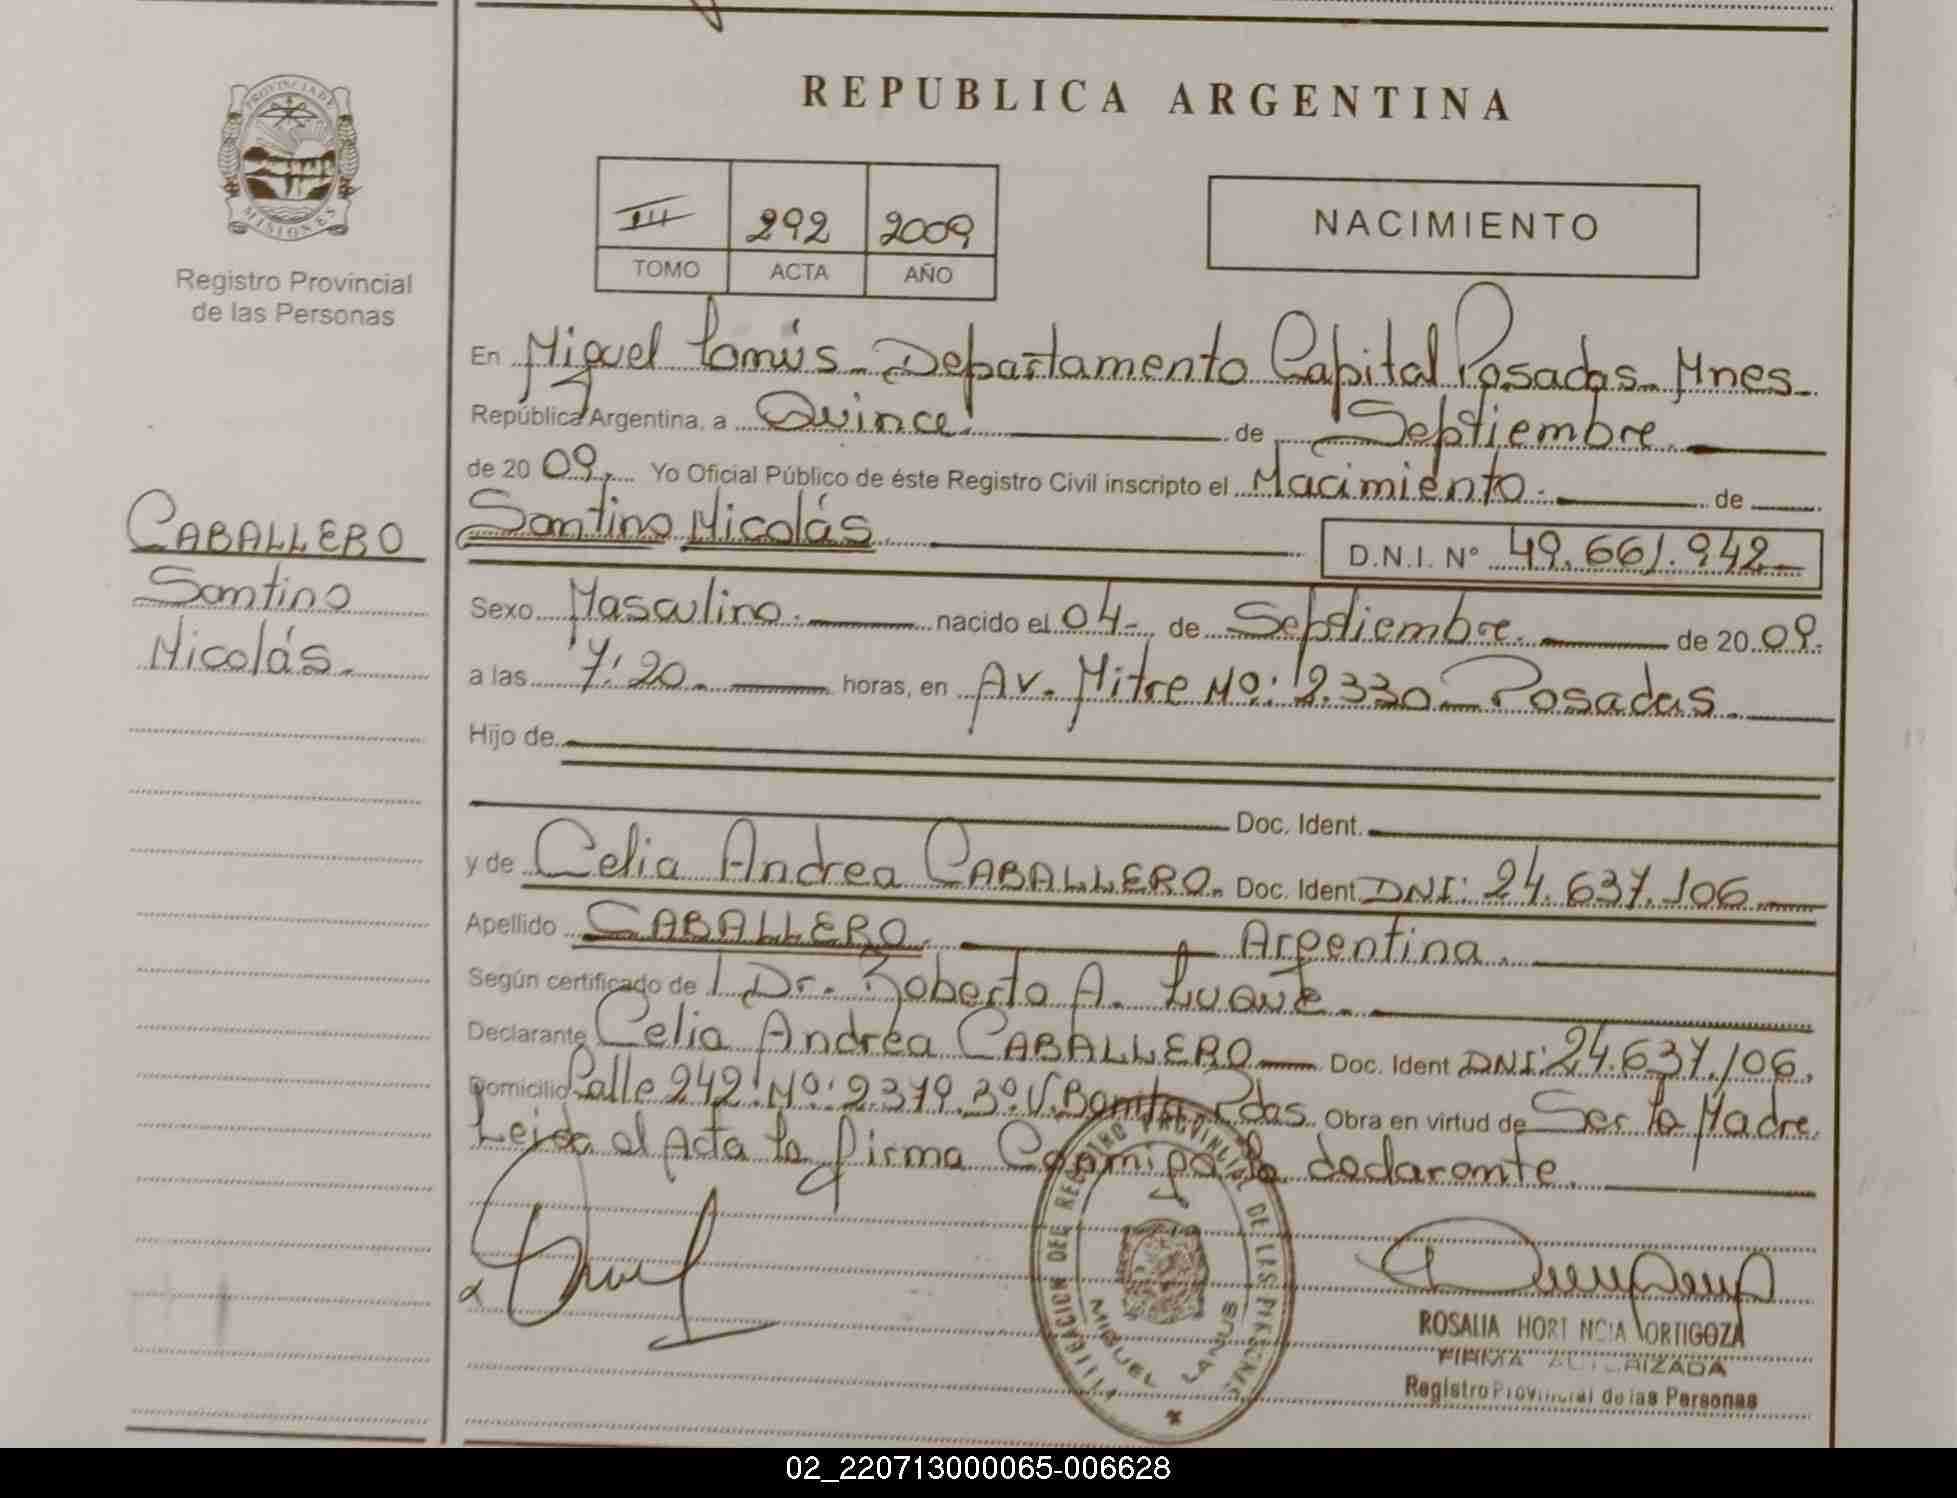 PROVINCIA DE
MISIONES
Registro Provincial
de las Personas
CABALLERO
Santino
Nicolás.
REPUBLICA ARGENTINA
III 292 2009
TOMO ACTA AÑO
NACIMIENTO
En Miguel Lanús - Departamento Capital Posadas - Mnes.
República Argentina, a Quince. de Septiembre.
de 2009. Yo Oficial Público de éste Registro Civil inscripto el Nacimiento. de
Santino Nicolás. D.N.I. Nº 49.661.942
Sexo Masculino. nacido el 04- de Septiembre. de 2009.
a las 7:20. horas, en Av. Mitre Nº: 2.330 - Posadas.
Hijo de
Doc. Ident.
y de Celia Andrea CABALLERO. Doc. Ident. DNI: 24.637.106
Apellido CABALLERO. Argentina.
Según certificado de l Dr. Roberto A. Luque.
Declarante Celia Andrea CABALLERO Doc. Ident DNI: 24.637.106.
Domicilio Calle 242. Nº: 2379. 3º. V. Bonita Pdas. Obra en virtud de Ser la Madre.
Leida el Acta la firma Conmigo la declarante.
DELEGACION DEL REGISTRO PROVINCIAL DE LAS PERSONAS
MIGUEL LANUS
ROSALIA HORTENCIA ORTIGOZA
FIRMA AUTORIZADA
Registro Provincial de las Personas
02_220713000065-006628